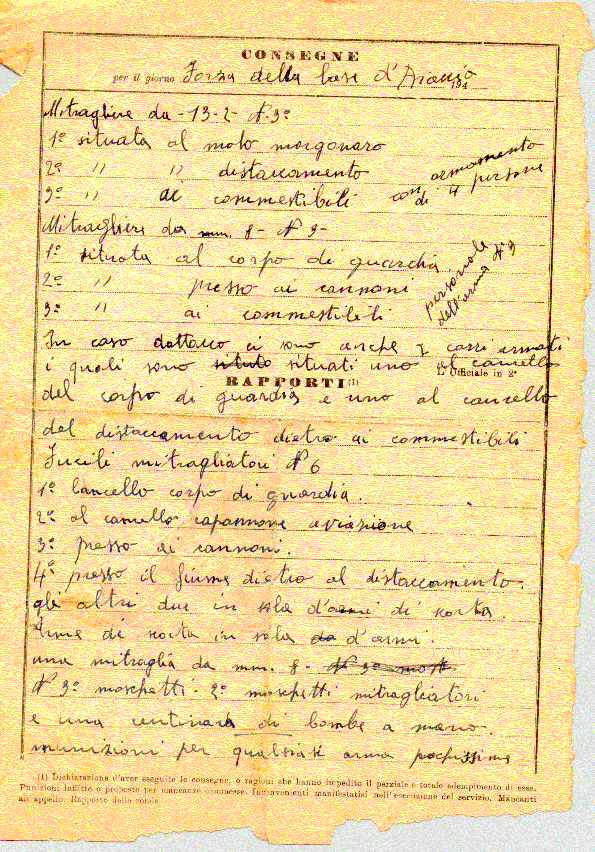 CONSEGNE
per il giorno Forza della base d'Arausio 194
Mitragliere da -13-2- N. 3º
1º situata al molo morgonaro
2º " " distaccamento
3º " ai commestibili con armamento di 4 persone
Mitragliere da mm. 8- N 3-
1º situata al corpo di guardia
2º " presso ai cannoni
3º " ai commestibili
personale dell'arma N 3
In caso dattacco ci sono anche 2 carri armati
i quali sono situati uno al cancello
L'Ufficiale in 2ª
RAPPORTI (1)
del corpo di guardia e uno al cancello
del distaccamento dietro ai commestibili
Fucili mitragliatori N 6
1º Cancello corpo di guardia.
2º al cancello capannone aviazione
3º presso ai cannoni.
4º presso il fiume dietro al distaccamento.
gli altri due in sala d'armi di scorta.
Arme di scorta in sala d'armi.
una mitraglia da mm. 8-
N 3º moschetti - 2º moschetti mitragliatori
e una centinara di bombe a mano.
munizioni per qualsiasi arma pochissime
(1) Dichiarazione d'aver eseguite le consegne, o ragioni che hanno impedito il parziale o totale adempimento di esse.
Punizioni inflitte o proposte per mancanze commesse. Inconvenienti manifestatisi nell'esecuzione del servizio. Mancanti
all'appello. Rapporto delle ronde.